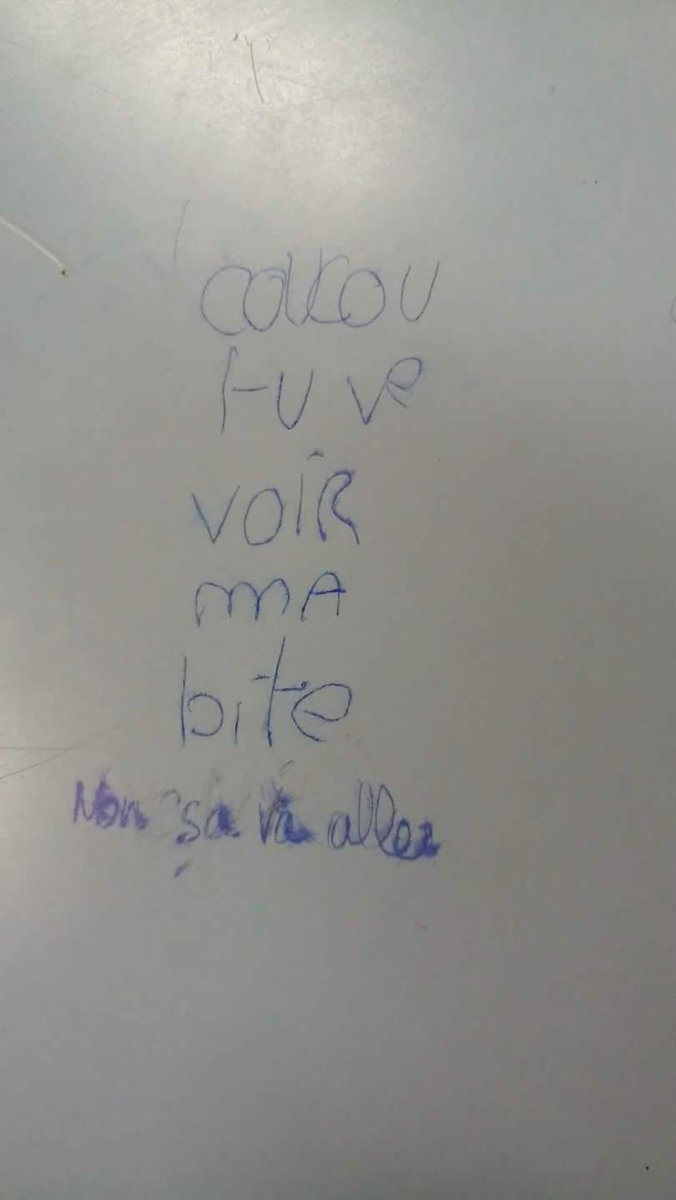 coucou
tu ve
voir
mA
bite
Non sa va aller